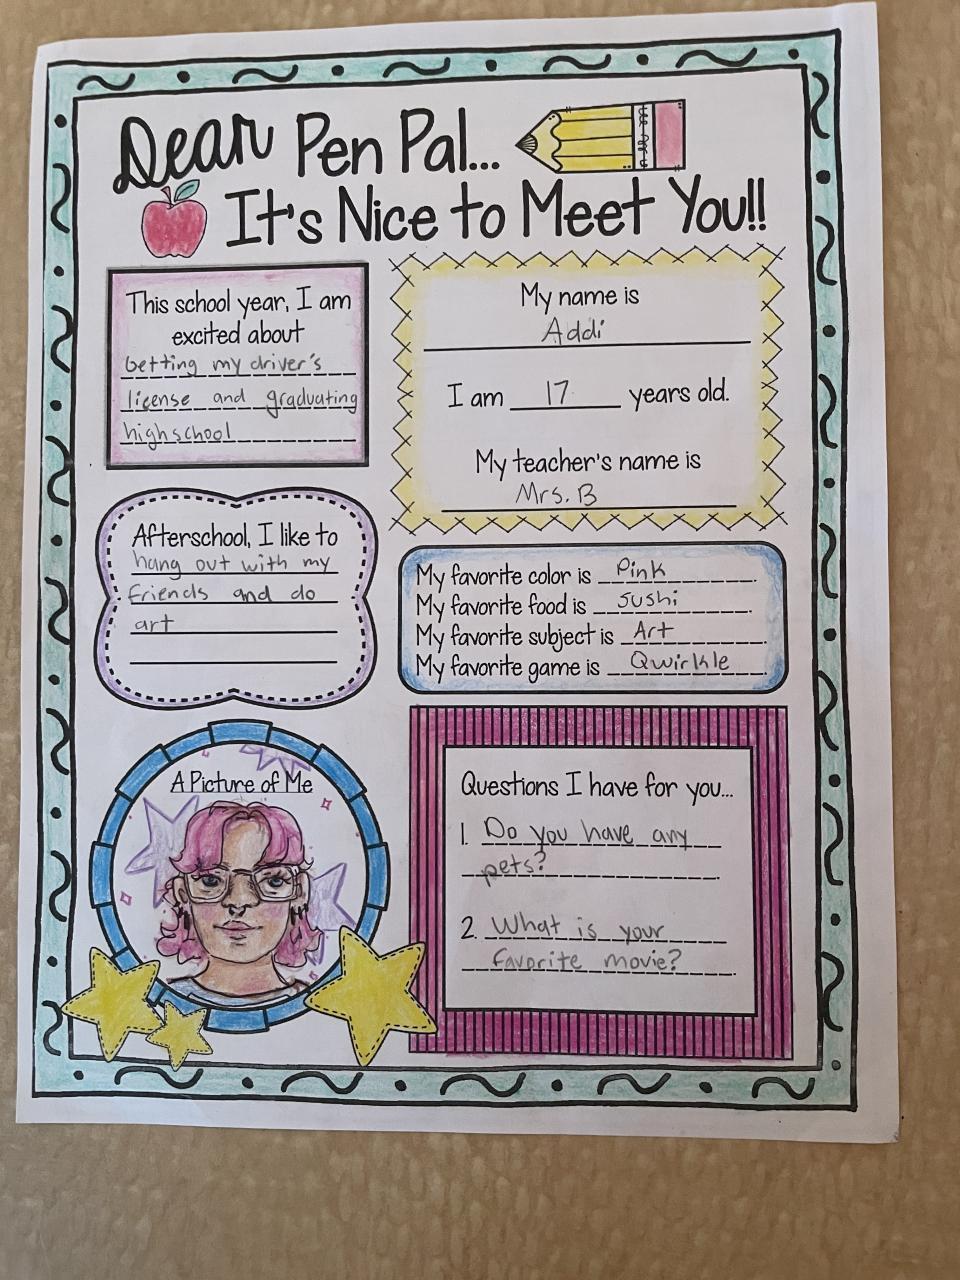 Dear Pen Pal...
It's Nice to Meet You!!
This school year, I am
excited about
Getting my driver's
license and graduating
highschool
My name is
Addi
I am 17 years old.
My teacher's name is
Mrs. B
Afterschool, I like to
hang out with my
friends and do
art
My favorite color is Pink.
My favorite food is Sushi.
My favorite subject is Art.
My favorite game is Qwirkle.
A Picture of Me
Questions I have for you...
1. Do you have any
pets?.
2. What is your
favorite movie?.